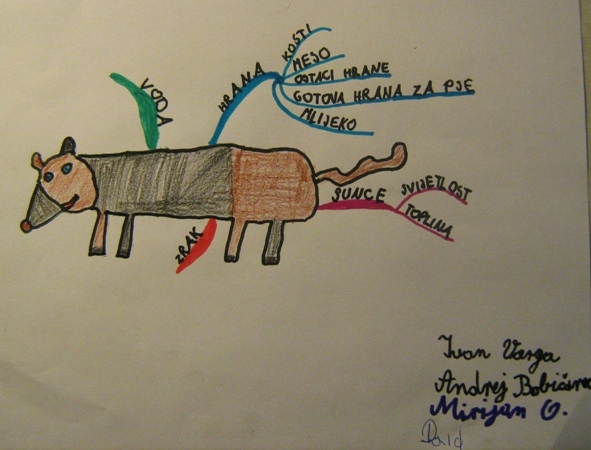 VODA
HRANA
KOSTI
MESO
OSTACI HRANE
GOTOVA HRANA ZA PSE
MLIJEKO
SUNCE
SVIJETLOST
TOPLINA
ZRAK
Ivan Varga
Andrej
Mirijan O.
David